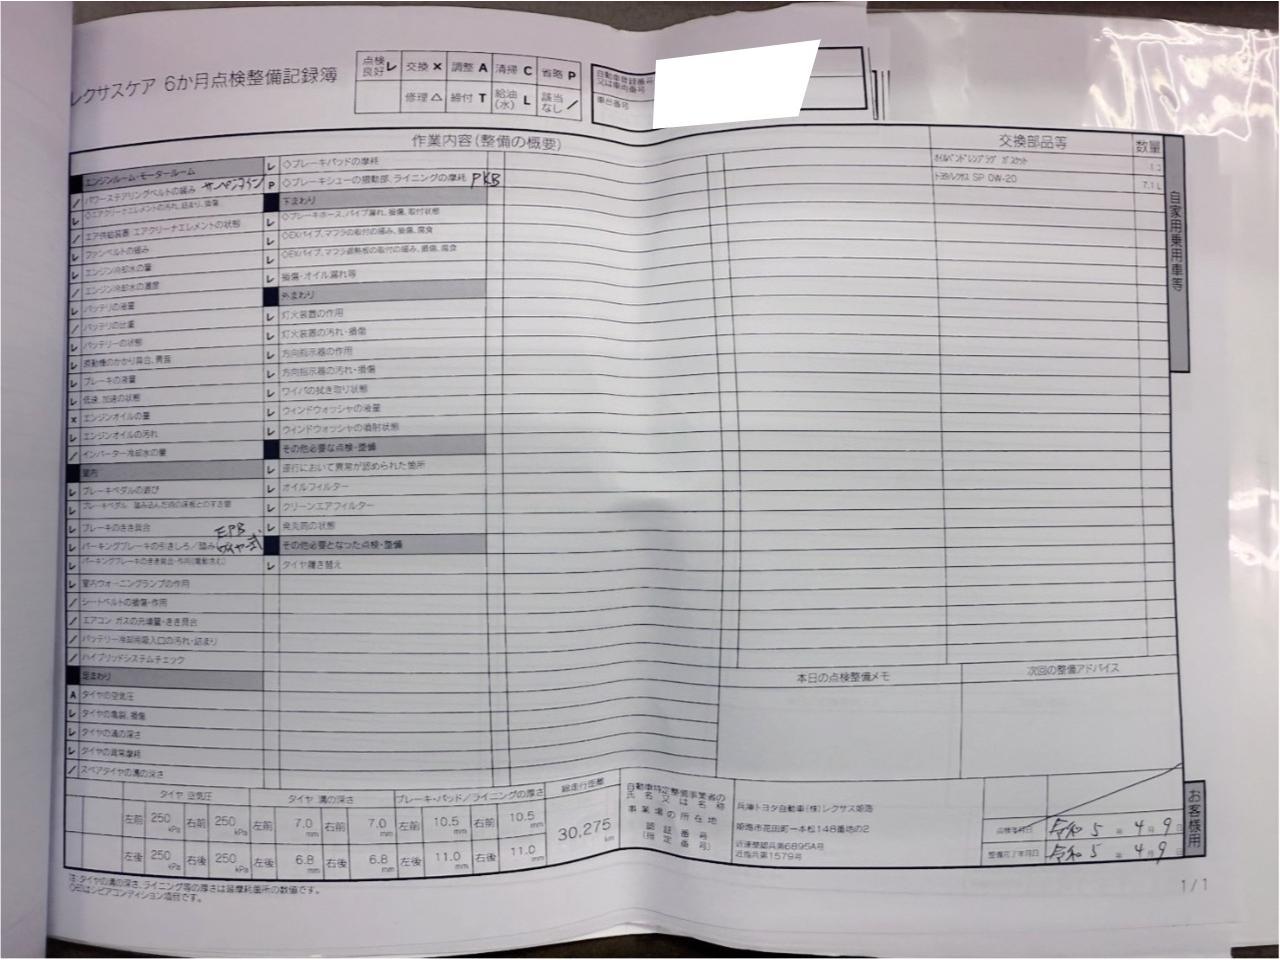 レクサスケア 6か月点検整備記録簿
点検良好 レ 交換 × 調整 A 清掃 C 省略 P
修理 △ 締付 T 給油(水) L 該当なし ／
自動車登録番号又は車両番号
車台番号
作業内容(整備の概要)
交換部品等 数量
エンジンルーム・モータールーム
／ パワーステアリングベルトの緩み サーペンタイン
レ ◇エアクリーナエレメントの汚れ、詰まり、損傷
／ エア供給装置 エアクリーナエレメントの状態
レ ファンベルトの緩み
レ エンジン冷却水の量
／ エンジン冷却水の濃度
レ バッテリの液量
／ バッテリの比重
レ バッテリーの状態
レ 原動機のかかり具合、異音
レ ブレーキの液量
レ 低速、加速の状態
× エンジンオイルの量
レ エンジンオイルの汚れ
／ インバーター冷却水の量
室内
レ ブレーキペダルの遊び
レ ブレーキペダル 踏み込んだ時の床板とのすき間
レ ブレーキのきき具合
レ パーキングブレーキの引きしろ／踏み EPB ワイヤ式
レ パーキングブレーキのきき具合・作用(電動含む)
レ 室内ウォーニングランプの作用
／ シートベルトの損傷・作用
／ エアコン ガスの充填量・きき具合
／ バッテリー冷却用吸入口の汚れ・詰まり
／ ハイブリッドシステムチェック
足まわり
A タイヤの空気圧
レ タイヤの亀裂、損傷
レ タイヤの溝の深さ
レ タイヤの異常摩耗
／ スペアタイヤの溝の深さ
レ ◇ブレーキパッドの摩耗
P ◇ブレーキシューの摺動部、ライニングの摩耗 PKB
下まわり
レ ◇ブレーキホース、パイプ漏れ、損傷、取付状態
レ ◇EXパイプ、マフラの取付の緩み、損傷、腐食
レ ◇EXパイプ、マフラ遮熱板の取付の緩み、損傷、腐食
レ 損傷・オイル漏れ等
外まわり
レ 灯火装置の作用
レ 灯火装置の汚れ・損傷
レ 方向指示器の作用
レ 方向指示器の汚れ・損傷
レ ワイパの拭き取り状態
レ ウィンドウォッシャの液量
レ ウィンドウォッシャの噴射状態
その他必要な点検・整備
レ 運行において異常が認められた箇所
レ オイルフィルター
レ クリーンエアフィルター
レ 発炎筒の状態
その他必要となった点検・整備
レ タイヤ履き替え
オイルパンドレンプラグ ガスケット
トヨタ/レクサス SP 0W-20 7.1 L
自家用乗用車等
本日の点検整備メモ 次回の整備アドバイス
タイヤ 空気圧 タイヤ 溝の深さ ブレーキ・パッド/ライニングの厚さ 総走行距離
左前 250 kPa 右前 250 kPa 左前 7.0 mm 右前 7.0 mm 左前 10.5 mm 右前 10.5 mm
左後 250 kPa 右後 250 kPa 左後 6.8 mm 右後 6.8 mm 左後 11.0 mm 右後 11.0 mm
30,275 km
自動車特定整備事業者の氏名又は名称 兵庫トヨタ自動車(株)レクサス姫路
事業場の所在地 姫路市花田町一本松148番地の2
認証番号(指定番号) 近運整認兵第6895A号
近指兵第1579号
点検年月日 令和 5 年 4 月 9 日
整備完了年月日 令和 5 年 4 月 9 日
お客様用
注:タイヤの溝の深さ、ライニング等の厚さは最摩耗箇所の数値です。
◇印はシビアコンディション項目です。
1 / 1